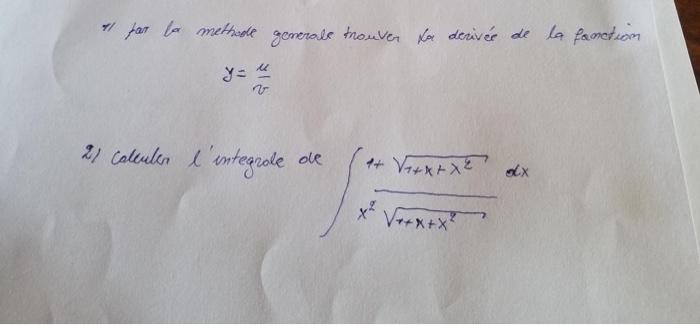 1) par la methode generale trouver la derivée de la fonction
y = u/v
2) calculer l'integrale de ∫ (1+ √(1+x+x²)) / (x² √(1+x+x²)) dx